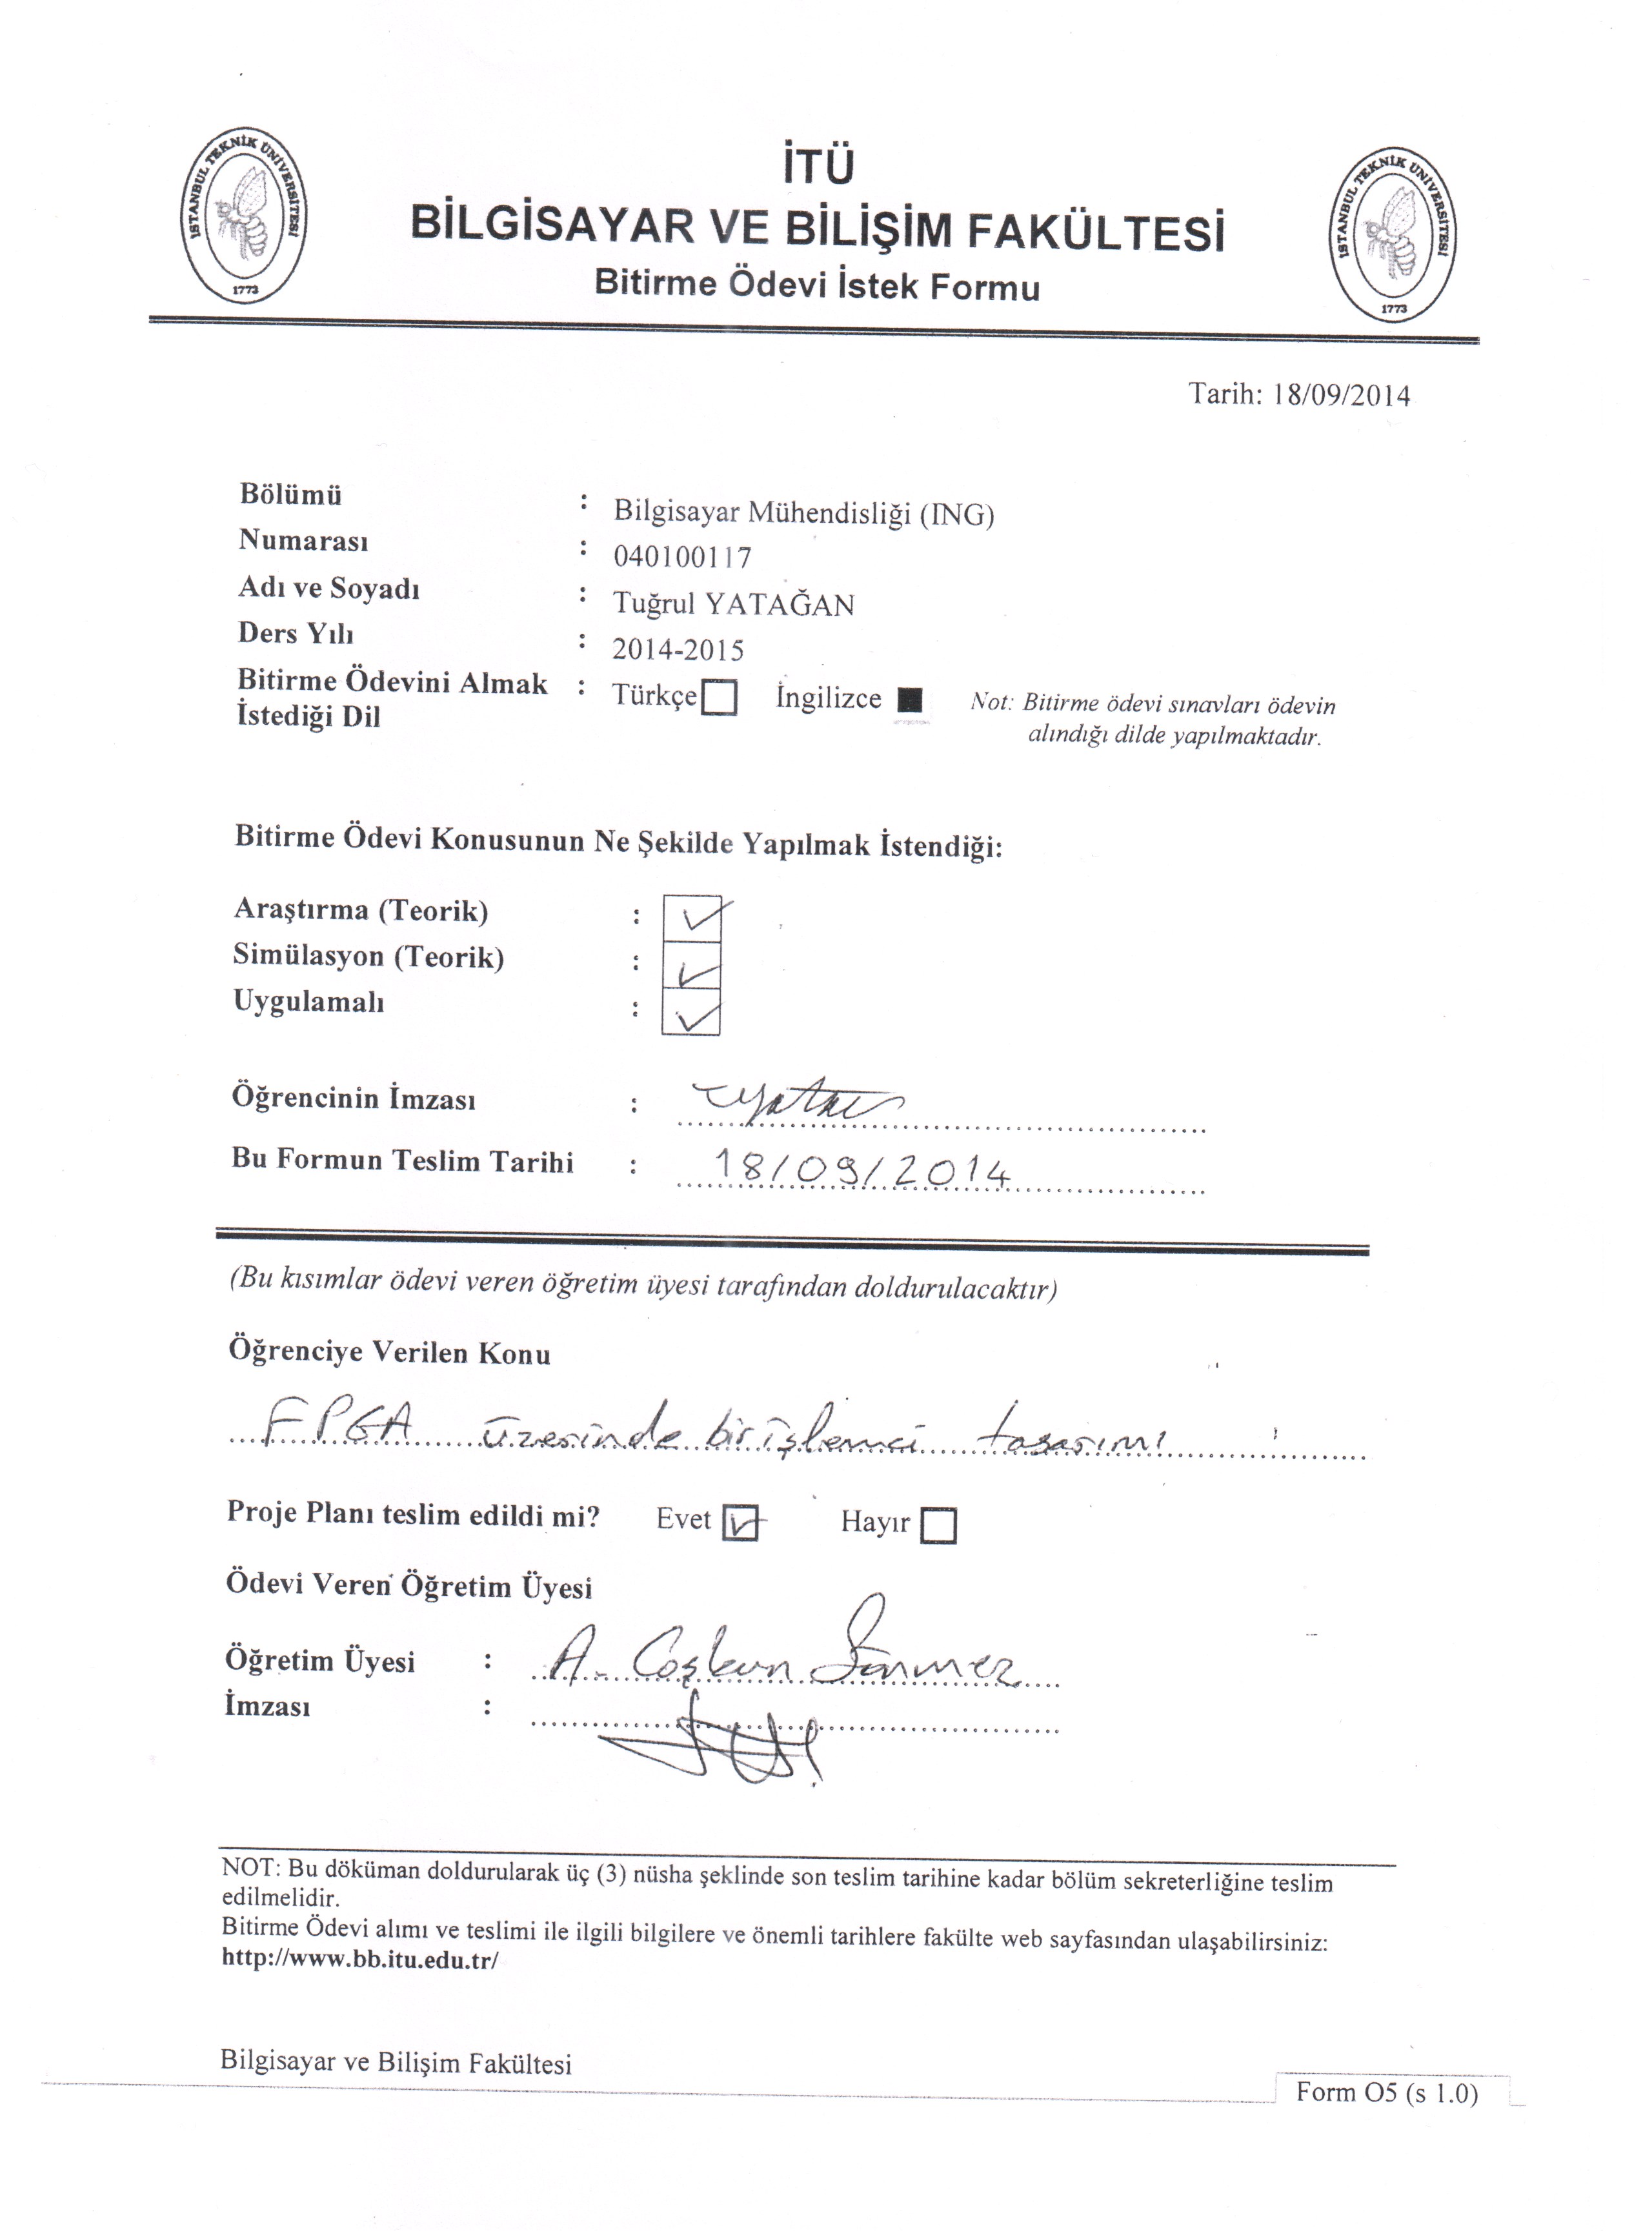 İSTANBUL TEKNİK ÜNİVERSİTESİ
1773
İTÜ
BİLGİSAYAR VE BİLİŞİM FAKÜLTESİ
Bitirme Ödevi İstek Formu
İSTANBUL TEKNİK ÜNİVERSİTESİ
1773
Tarih: 18/09/2014
Bölümü : Bilgisayar Mühendisliği (ING)
Numarası : 040100117
Adı ve Soyadı : Tuğrul YATAĞAN
Ders Yılı : 2014-2015
Bitirme Ödevini Almak : Türkçe İngilizce Not: Bitirme ödevi sınavları ödevin
İstediği Dil alındığı dilde yapılmaktadır.
Bitirme Ödevi Konusunun Ne Şekilde Yapılmak İstendiği:
Araştırma (Teorik) :
Simülasyon (Teorik) :
Uygulamalı :
Öğrencinin İmzası :
Bu Formun Teslim Tarihi : 18/09/2014
(Bu kısımlar ödevi veren öğretim üyesi tarafından doldurulacaktır)
Öğrenciye Verilen Konu
FPGA üzerinde bir işlemci tasarımı
Proje Planı teslim edildi mi? Evet Hayır
Ödevi Veren Öğretim Üyesi
Öğretim Üyesi : A. Coşkun Sönmez
İmzası :
NOT: Bu döküman doldurularak üç (3) nüsha şeklinde son teslim tarihine kadar bölüm sekreterliğine teslim
edilmelidir.
Bitirme Ödevi alımı ve teslimi ile ilgili bilgilere ve önemli tarihlere fakülte web sayfasından ulaşabilirsiniz:
http://www.bb.itu.edu.tr/
Bilgisayar ve Bilişim Fakültesi
Form O5 (s 1.0)